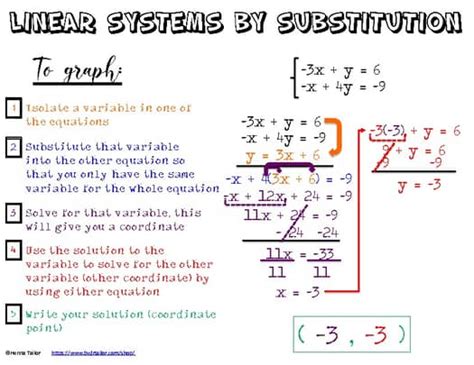 LINEAR SYSTEMS BY SUBSTITUTION
To graph:
1 Isolate a variable in one of
the equations
2 Substitute that variable
into the other equation so
that you only have the same
variable for the whole equation
3 Solve for that variable, this
will give you a coordinate
4 Use the solution to the
variable to solve for the other
variable (other coordinate) by
using either equation
5 Write your solution (coordinate
point)
-3x + y = 6
-x + 4y = -9
-3x + y = 6
-x + 4y = -9
y = 3x + 6
-x + 4(3x + 6) = -9
-x + 12x + 24 = -9
11x + 24 = -9
-24 -24
11x = -33
11 11
x = -3
-3(-3) + y = 6
9 + y = 6
-9 -9
y = -3
( -3 , -3 )
©Henna Tailor https://www.